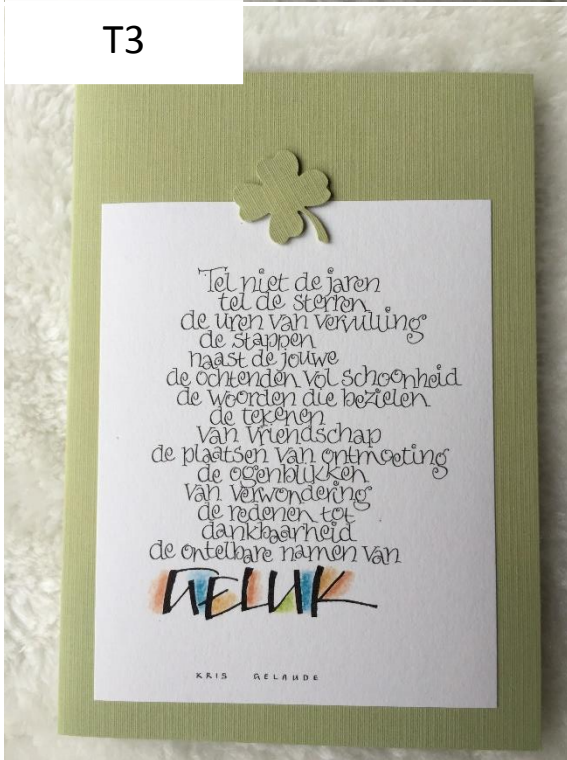 T3
Tel niet de jaren
tel de sterren
de uren van vervulling
de stappen
naast de jouwe
de ochtenden vol schoonheid
de woorden die bezielen
de tekenen
van vriendschap
de plaatsen van ontmoeting
de ogenblikken
van verwondering
de redenen tot
dankbaarheid
de ontelbare namen van
GELUK
KRIS GELAUDE